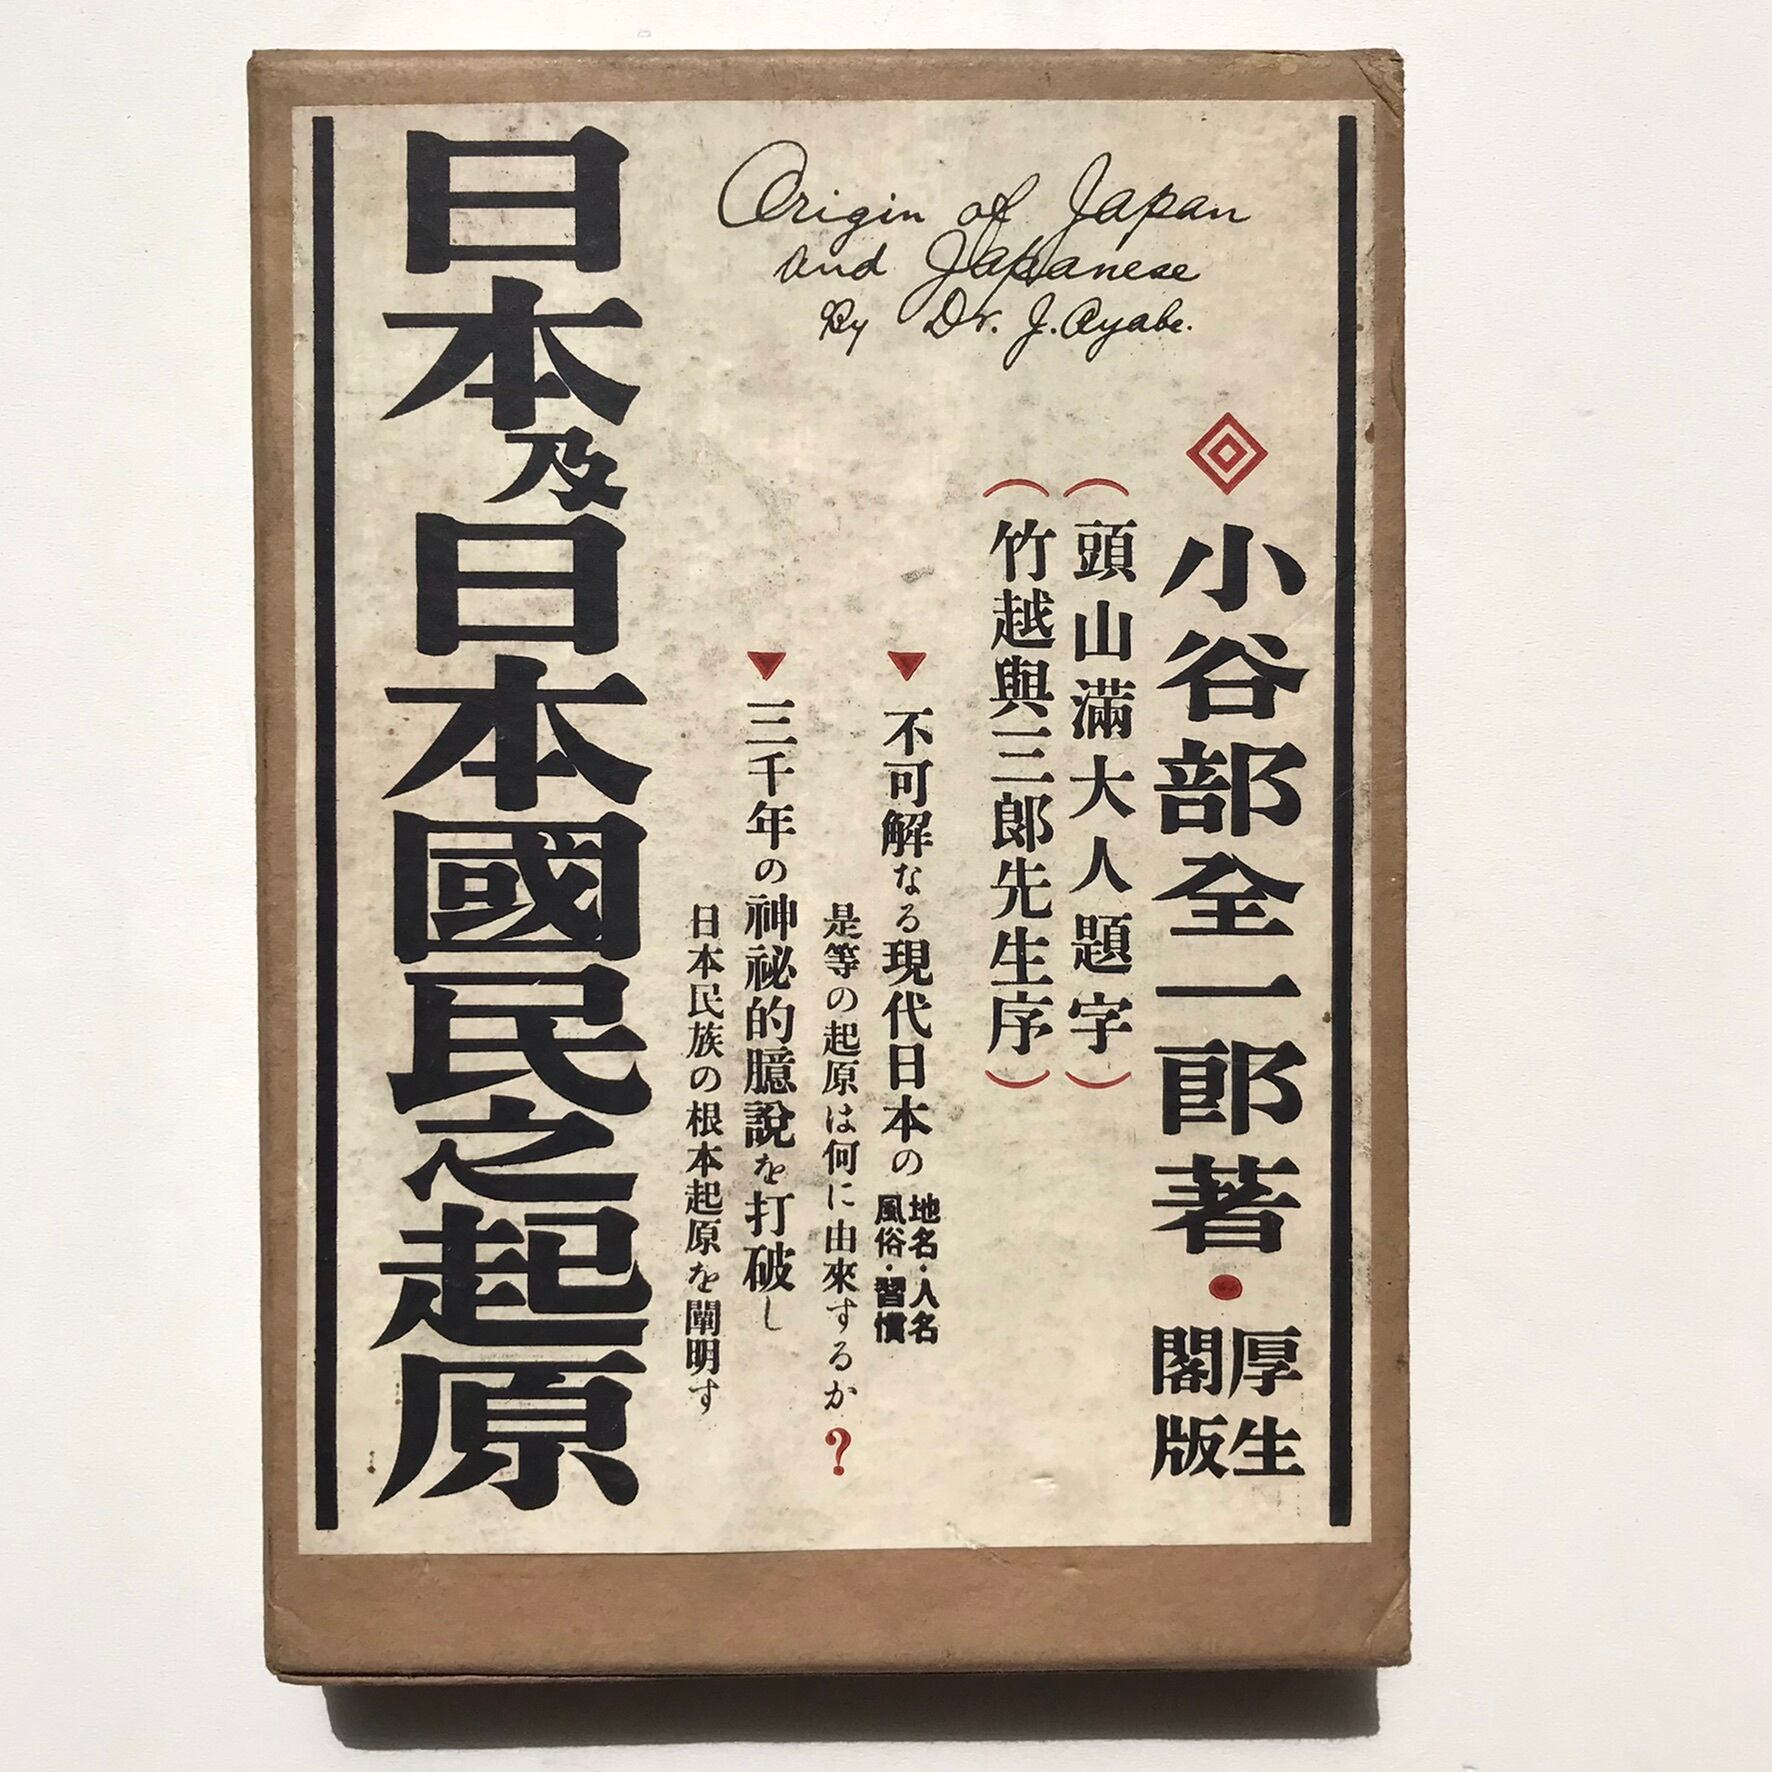 Origin of Japan
and Japanese
By Dr. J. Oyabe.
小谷部全一郎著・厚生閣版
(頭山滿大人題字)
(竹越與三郎先生序)
不可解なる現代日本の地名・人名風俗・習慣
是等の起原は何に由來するか?
三千年の神祕的臆說を打破し
日本民族の根本起原を闡明す
日本及日本國民之起原